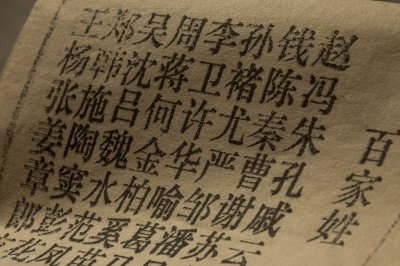 百家姓
赵钱孙李周吴郑王
冯陈褚卫蒋沈韩杨
朱秦尤许何吕施张
孔曹严华金魏陶姜
戚谢邹喻柏水窦章
云苏潘葛奚范彭郎
苗凤